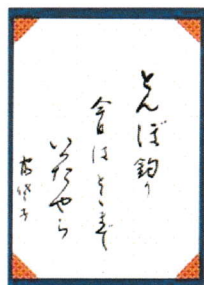 とんぼ釣り
今日はどこまで
いったやら